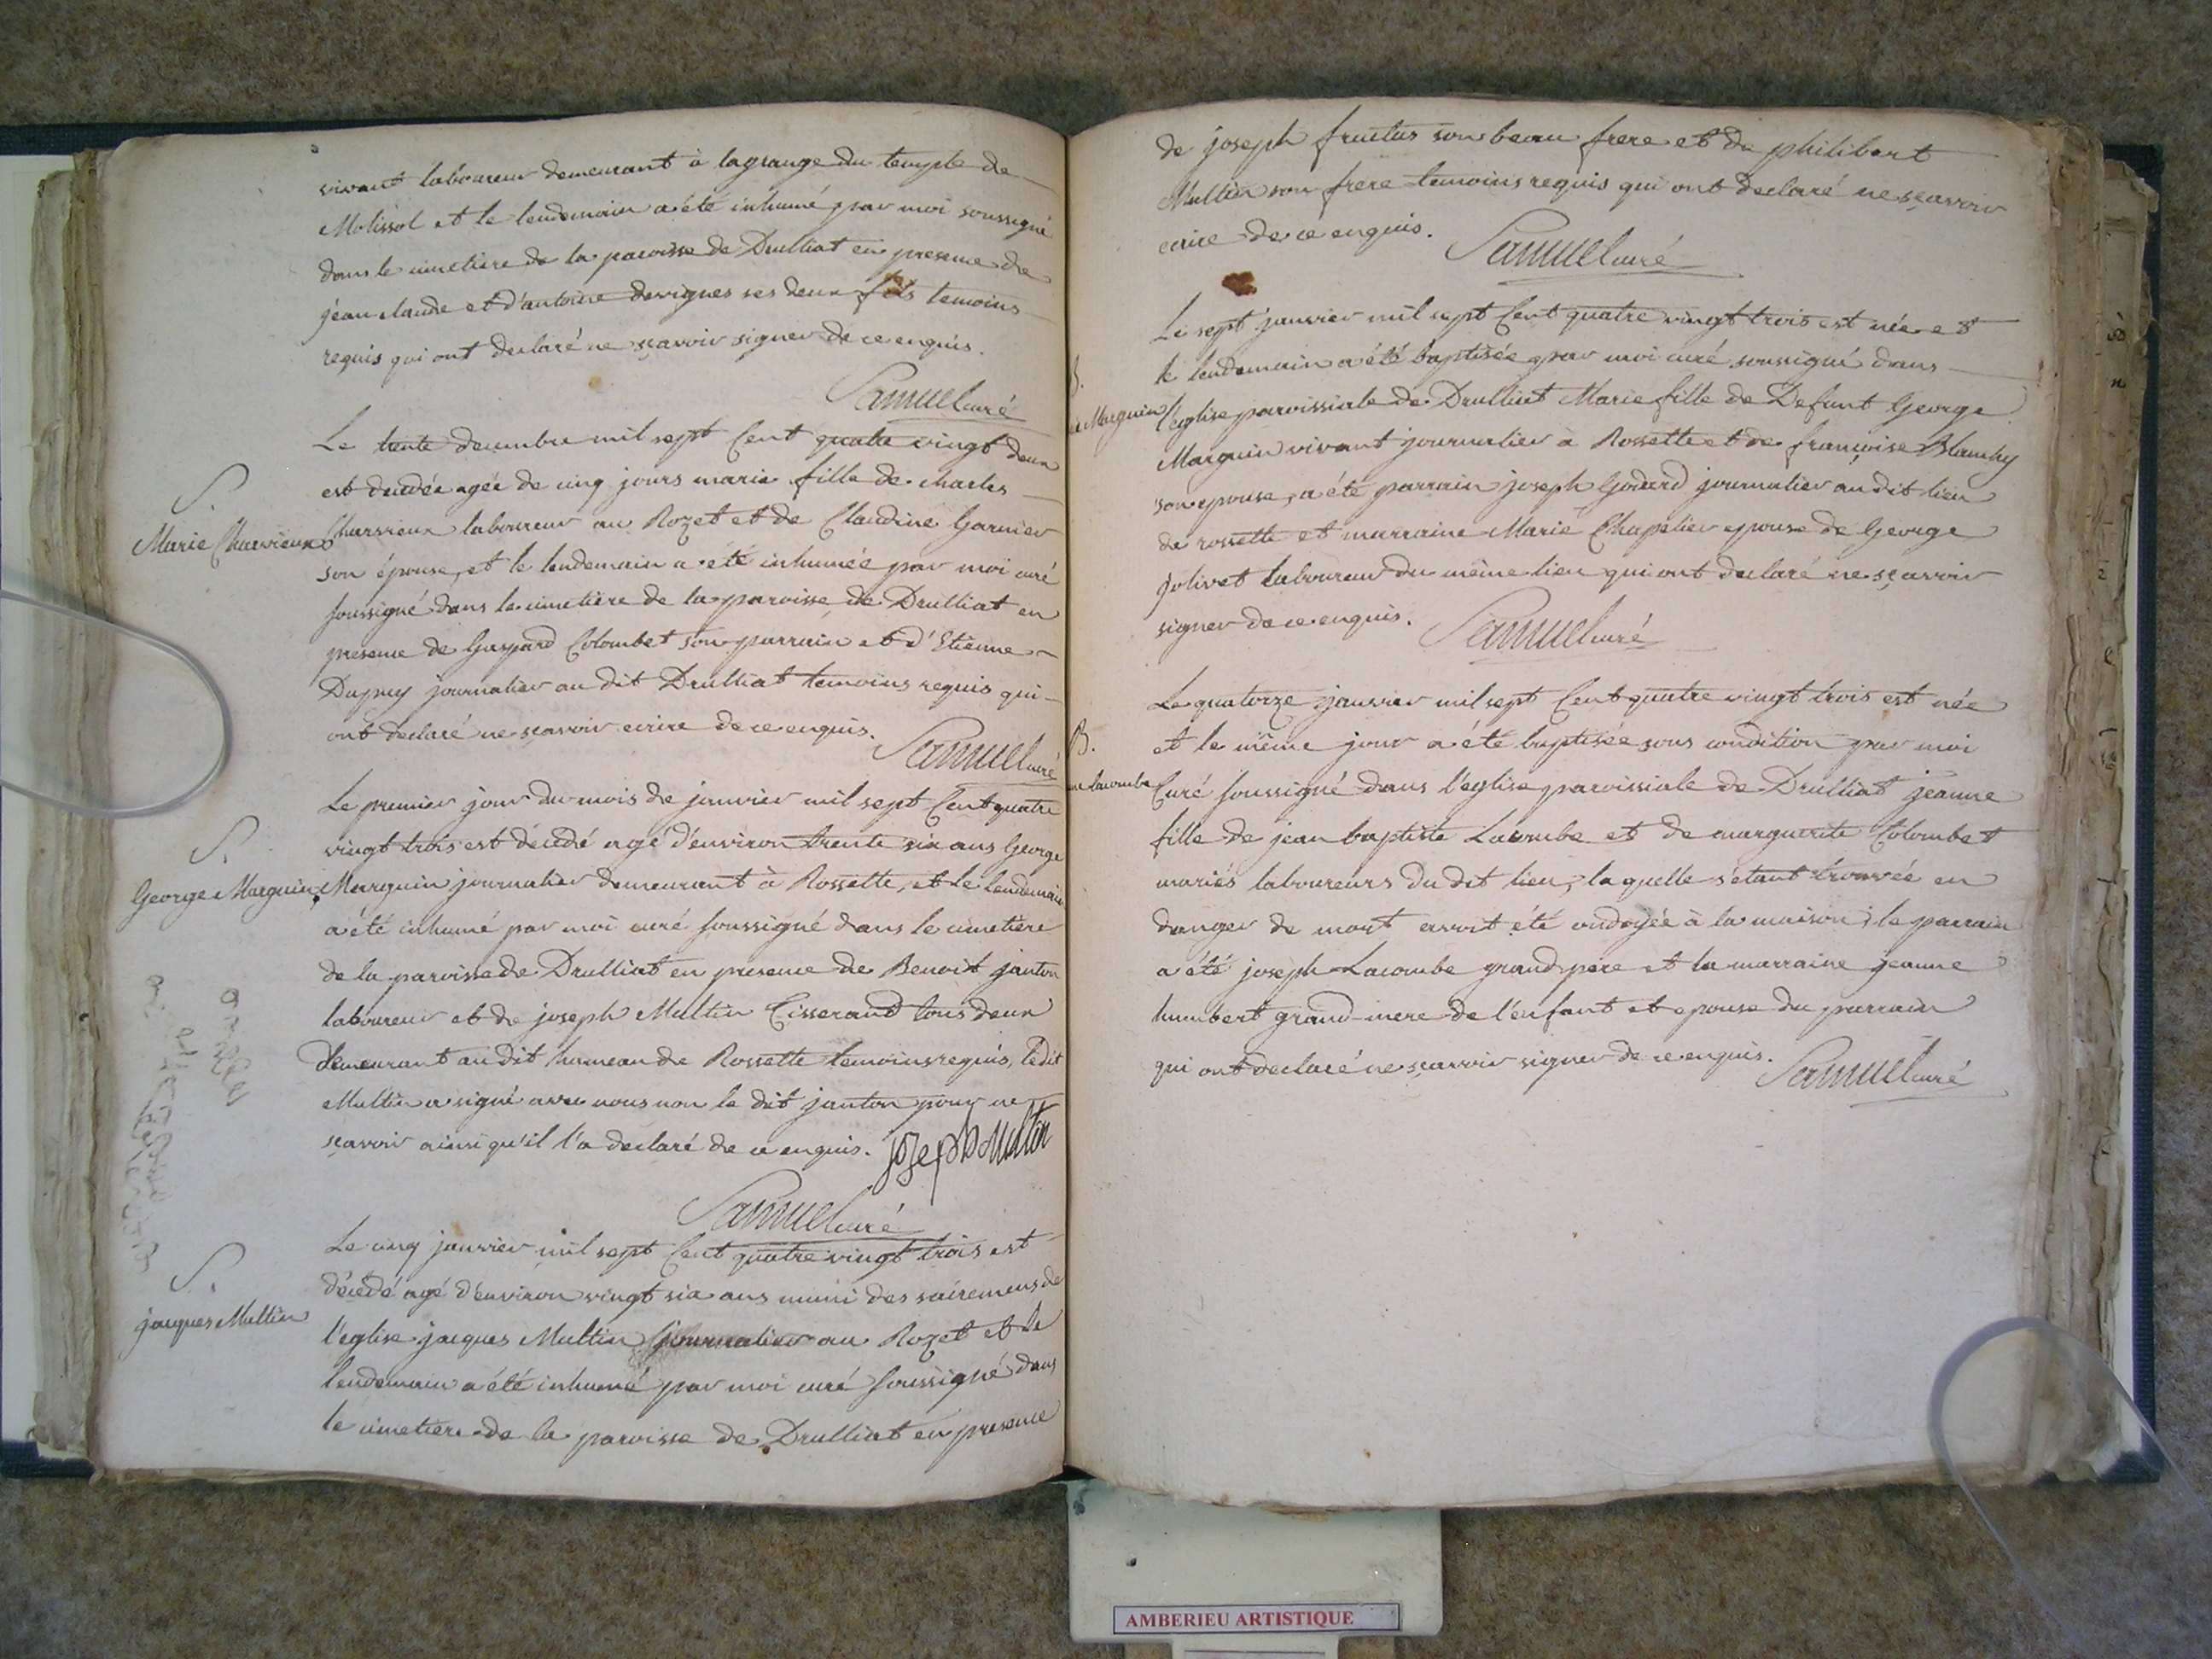 vivant laboureur demeurant à lagrange du temple de
Molissol et le lendemain a été inhumé par moi soussigné
dans le cimetiere de la paroisse de Drulliat en presence de
jean claude et d'antoine desvignes ses deux fils temoins
requis qui ont declaré ne sçavoir signer de ce enquis.
Samuel curé
S.
Marie Charvieux
Le trente decembre mil sept Cent quatre vingt deux
est decedée agée de cinq jours marie fille de charles
Charvieux laboureur au Rozet et de Claudine Garnier
son épouse, et le lendemain a été inhumée par moi curé
soussigné dans le cimetiere de la paroisse de Drulliat en
presence de Gaspard Colombet son parrain et d'Etienne
Dupuy journalier au dit Drulliat temoins requis qui
ont declaré ne sçavoir ecrire de ce enquis.
Samuel curé
S.
George Marguin
Le premier jour du mois de janvier mil sept Cent quatre
vingt trois est décédé agé d'environ trente six ans George
Marguin journalier demeurant à Rossette, et le lendemain
a été inhumé par moi curé soussigné dans le cimetiere
de la paroisse de Drulliat en presence de Benoit janton
laboureur et de joseph Multin Tisserand tous deux
demeurant au dit hameau de Rossette temoins requis, le dit
Multin a signé avec nous non le dit janton pour ne
sçavoir ainsi qu'il l'a declaré de ce enquis. joseph Multin
Samuel curé
S.
jacques Multin
Le cinq janvier mil sept Cent quatre vingt trois est
décédé agé d'environ vingt six ans muni des sacremens de
l'eglise jacques Multin journalier au Rozet et le
lendemain a été inhumé par moi curé soussigné dans
le cimetiere de la paroisse de Drulliat en presence
de joseph fructus son beau frere et de philibert
Multin son frere temoins requis qui ont declaré ne sçavoir
ecrire de ce enquis.
Samuel curé
B.
Marguin
Le sept janvier mil sept Cent quatre vingt trois est née et
le lendemain a été baptisée par moi curé soussigné dans
l'eglise paroissiale de Drulliat Marie fille de Defunt George
Marguin vivant journalier à Rossette et de françoise Blanchy
son epouse, a été parrain joseph Godard journalier au dit lieu
de rossette et marraine Marie Chapelier epouse de George
Jolivet laboureur du même lieu qui ont declaré ne sçavoir
signer de ce enquis.
Samuel curé
B.
ne lacombe
Le quatorze janvier mil sept Cent quatre vingt trois est née
et le même jour a été baptisée sous condition par moi
Curé soussigné dans l'église paroissiale de Drulliat jeanne
fille de jean baptiste Lacombe et de marguerite Colombet
mariés laboureurs du dit lieu, la quelle s'etant trouvée en
danger de mort avoit été ondoyée à la maison; le parrain
a été joseph Lacombe grand pere et la marraine jeanne
humbert grand-mere de l'enfant et epouse du parrain
qui ont declaré ne sçavoir signer de ce enquis.
Samuel curé
AMBERIEU ARTISTIQUE